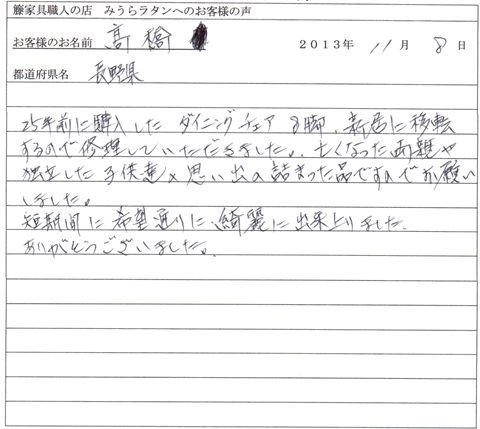 籐家具職人の店　みうらラタンへのお客様の声
お客様のお名前　髙橋　2013年 11月 8日
都道府県名　長野県
25年前に購入した ダイニングチェア 8脚、新居に移転
するので修理していただきました。亡くなった両親や
独立した子供達×思い出の詰まった品ですのでお願い
しました。
短期間に希望通りに、綺麗に出来上りました。
ありがとうございました。